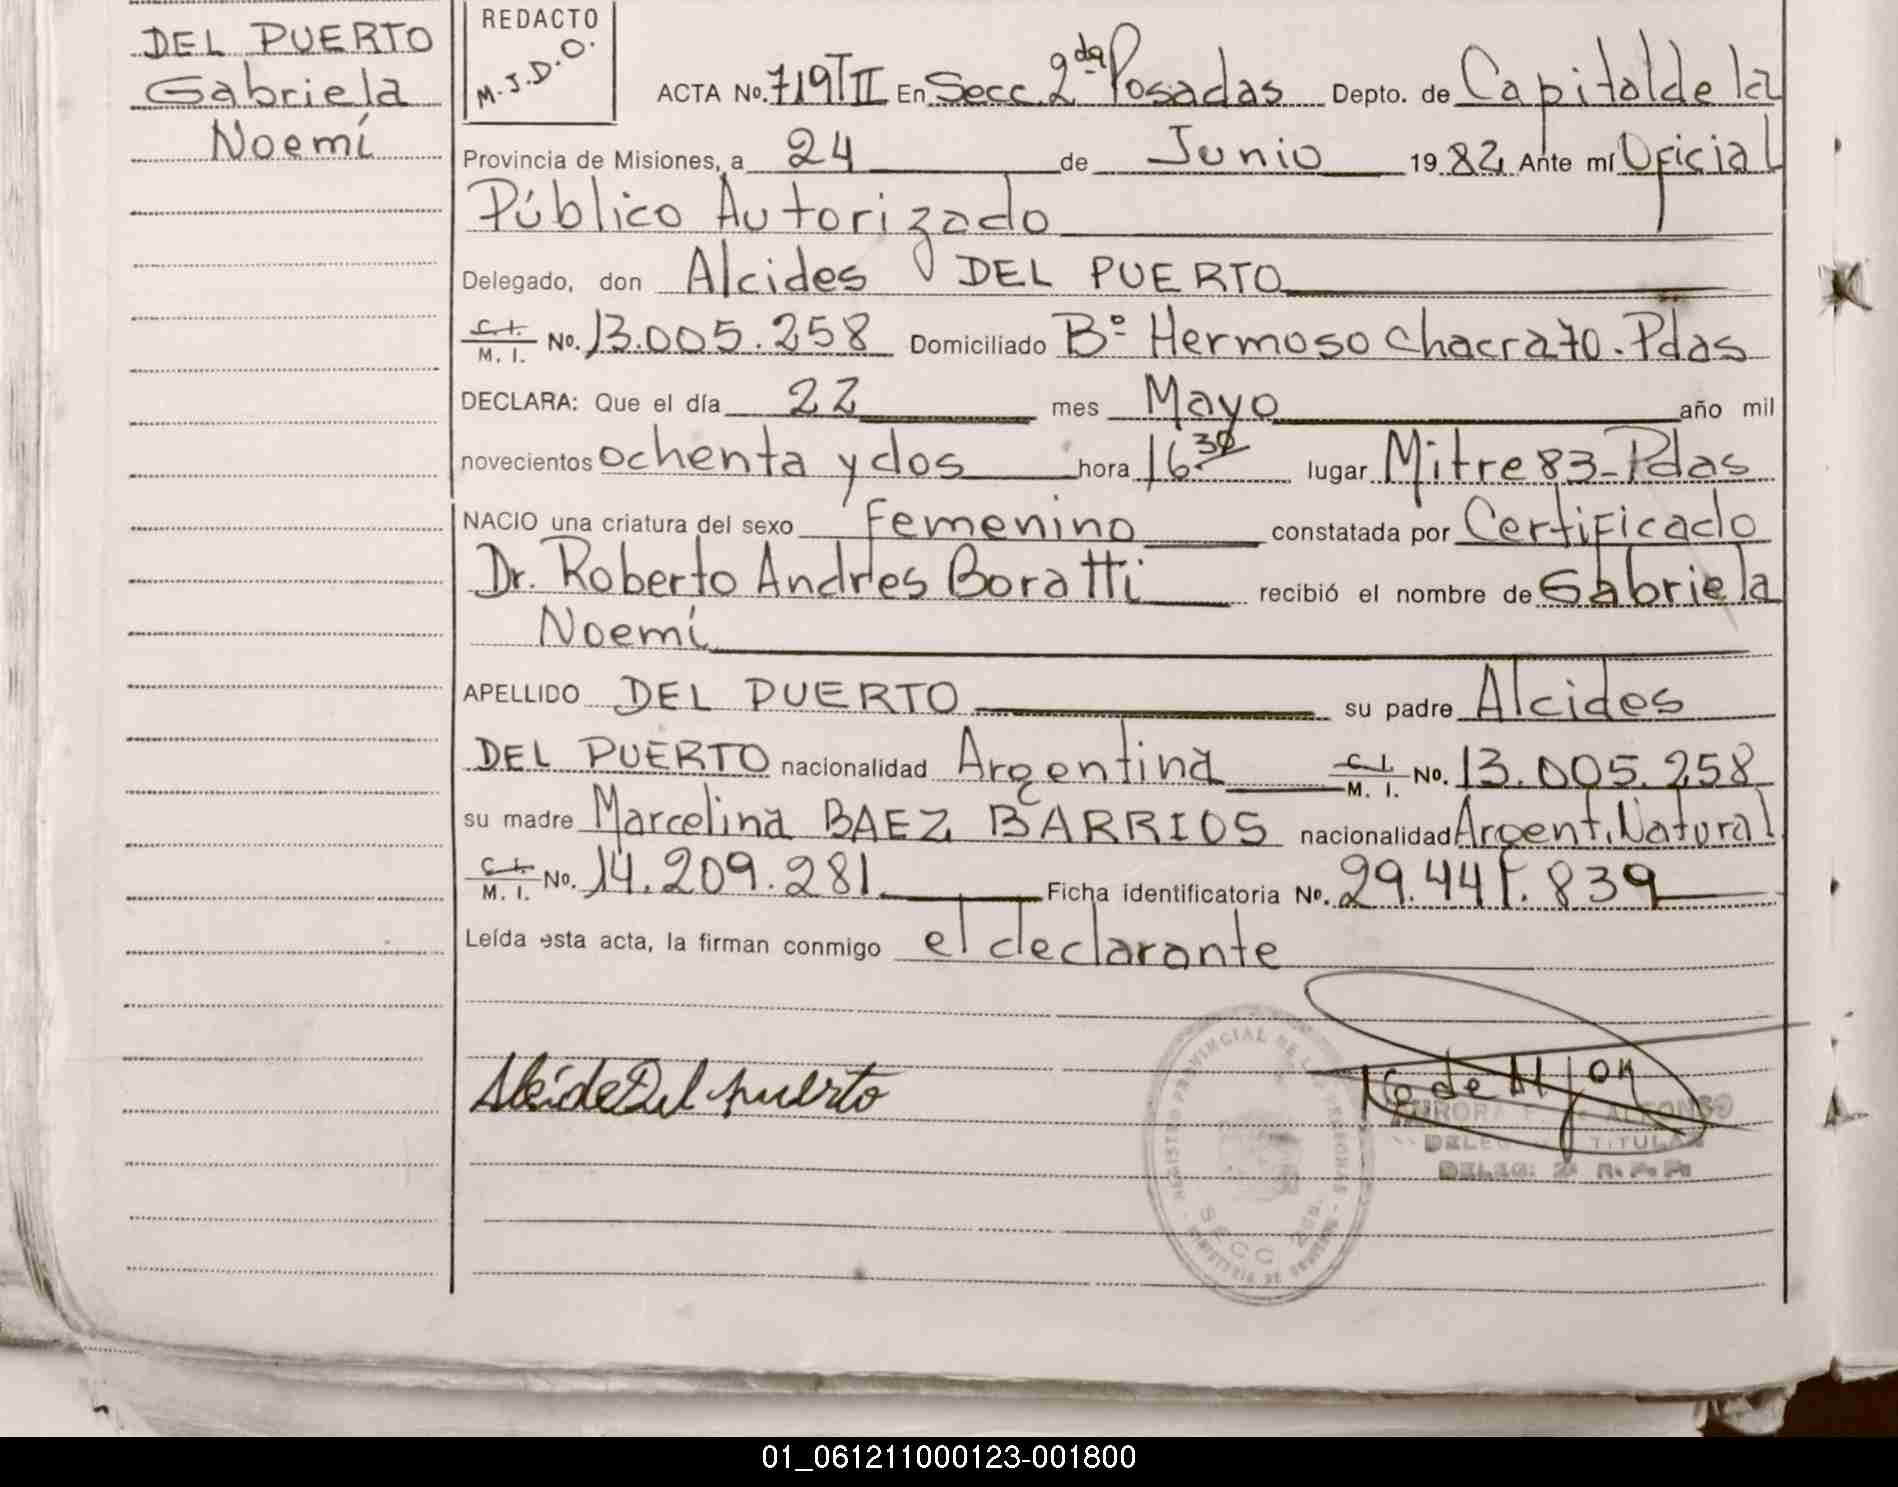 DEL PUERTO
Gabriela
Noemí
REDACTO
M.J.D.O.
ACTA No. 719 TII En Secc. 2da Posadas Depto. de Capital de la
Provincia de Misiones, a 24 de Junio 1982 Ante mí Oficial
Público Autorizado
Delegado, don Alcides DEL PUERTO
C.I. M. I. No. 13.005.258 Domiciliado Bº Hermoso Chacra 70. Pdas
DECLARA: Que el día 22 mes Mayo año mil
novecientos ochenta y dos hora 16 30 lugar Mitre 83-Pdas
NACIO una criatura del sexo Femenino constatada por Certificado
Dr. Roberto Andres Boratti recibió el nombre de Gabriela
Noemí
APELLIDO DEL PUERTO su padre Alcides
DEL PUERTO nacionalidad Argentina C.I. M. I. No. 13.005.258
su madre Marcelina BAEZ BARRIOS nacionalidad Argent. Natural
C.I. M. I. No. 14.209.281 Ficha identificatoria No. 29.441.839
Leída esta acta, la firman conmigo el declarante
Alcide Del puerto
REGISTRO PROVINCIAL DE LAS PERSONAS
SECC 2da.
MINISTERIO DE GOBIERNO
ALFONSO
TITULAR
DELEG. 2ª R.P.P.
01_061211000123-001800